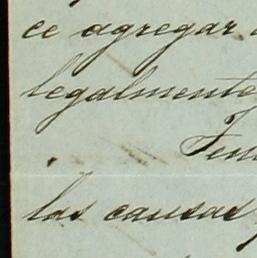 ce agregar
legalmente
las causas